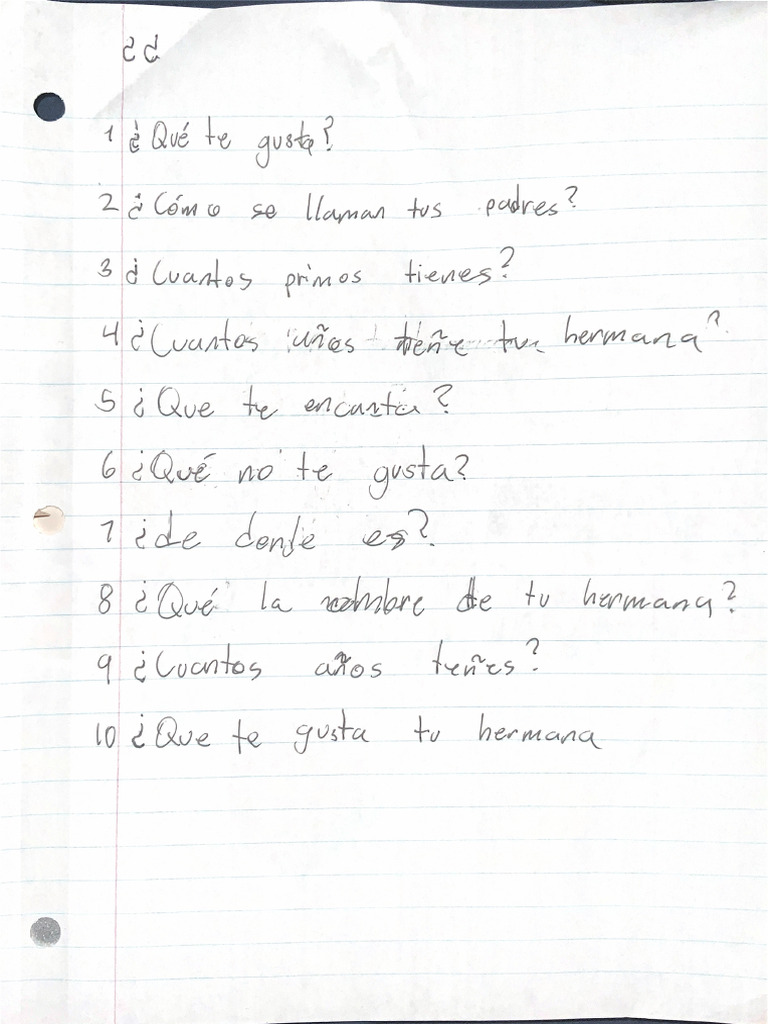 ¿¿
1 ¿Qué te gusta?
2 ¿Cómo se llaman tus padres?
3 ¿Cuantos primos tienes?
4 ¿Cuantos años tieñe tu hermana?
5 ¿Que te encanta?
6 ¿Qué no te gusta?
7 ¿de donde es?
8 ¿Qué la nombre de tu hermana?
9 ¿Cuantos años teñes?
10 ¿Que te gusta tu hermana